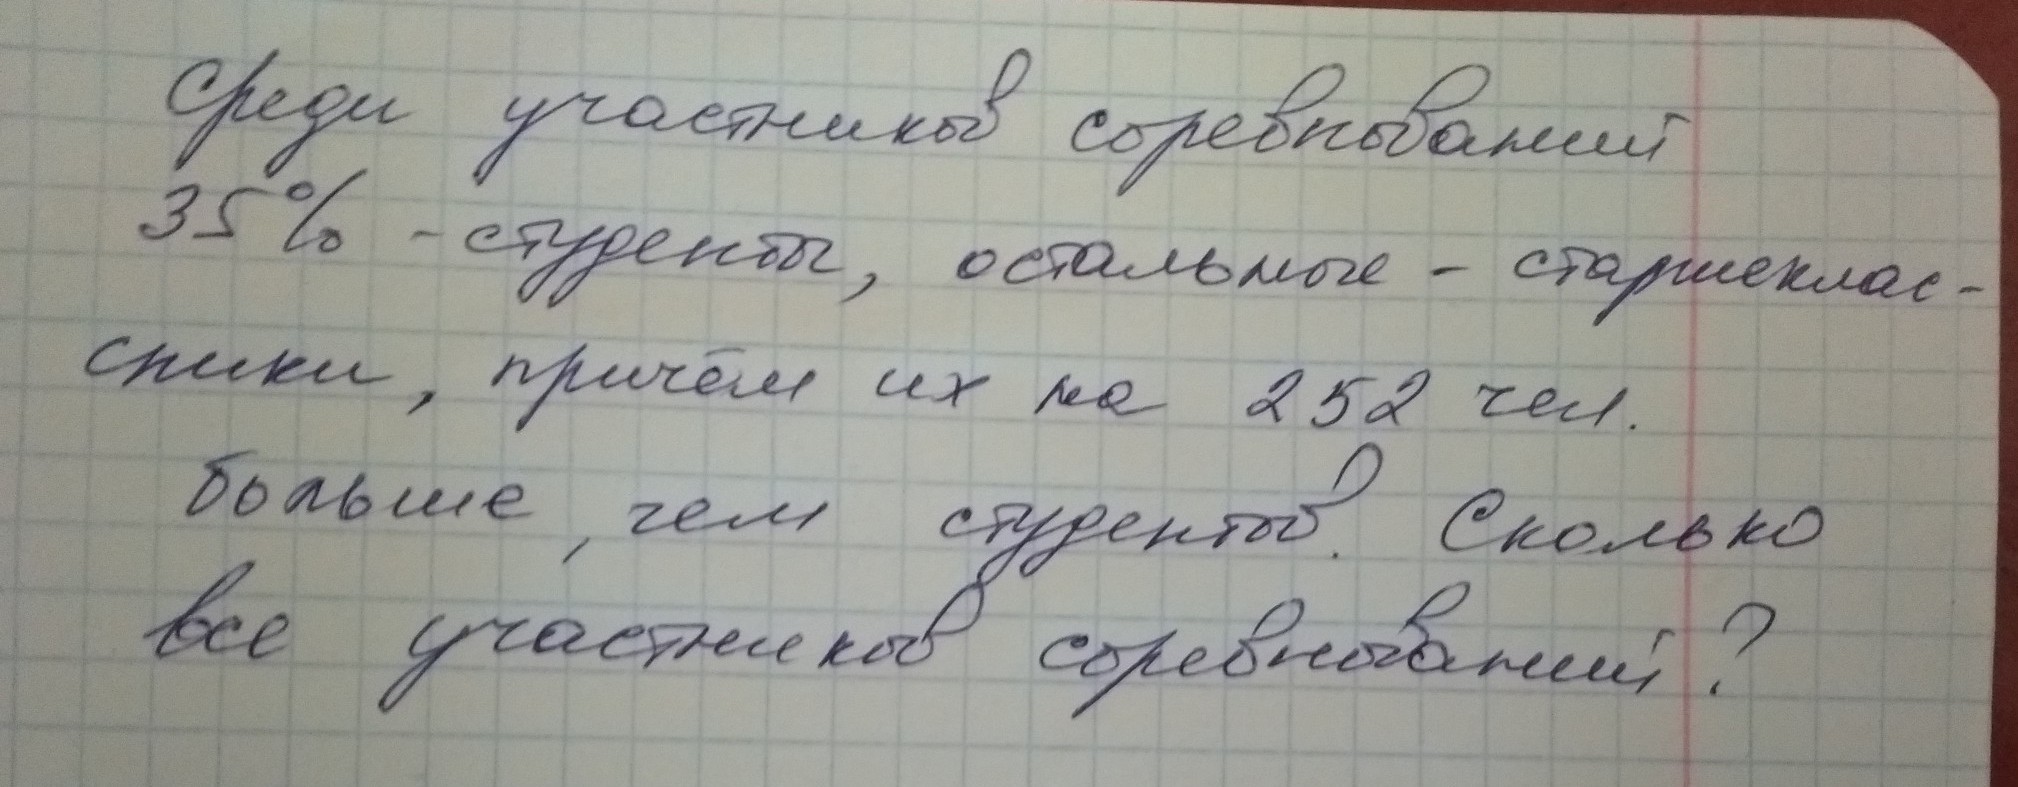 Среди участников соревнований
35% - студенты, остальные - старшеклас-
сники, причём их на 252 чел.
больше, чем студентов. Сколько
все участников соревнований?